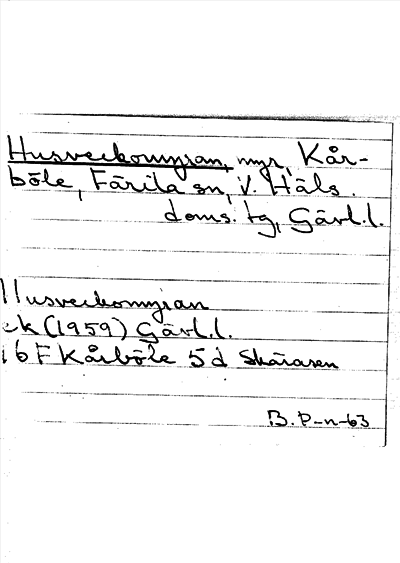 Husveckomyran, myr, Kår-
böle, Färila sn, V. Häls.
doms. tg, Gävl.l.
Husveckomyran
ek (1959) Gävl.l.
16 F Kårböle 5d Skäråsen
B. P-n-63